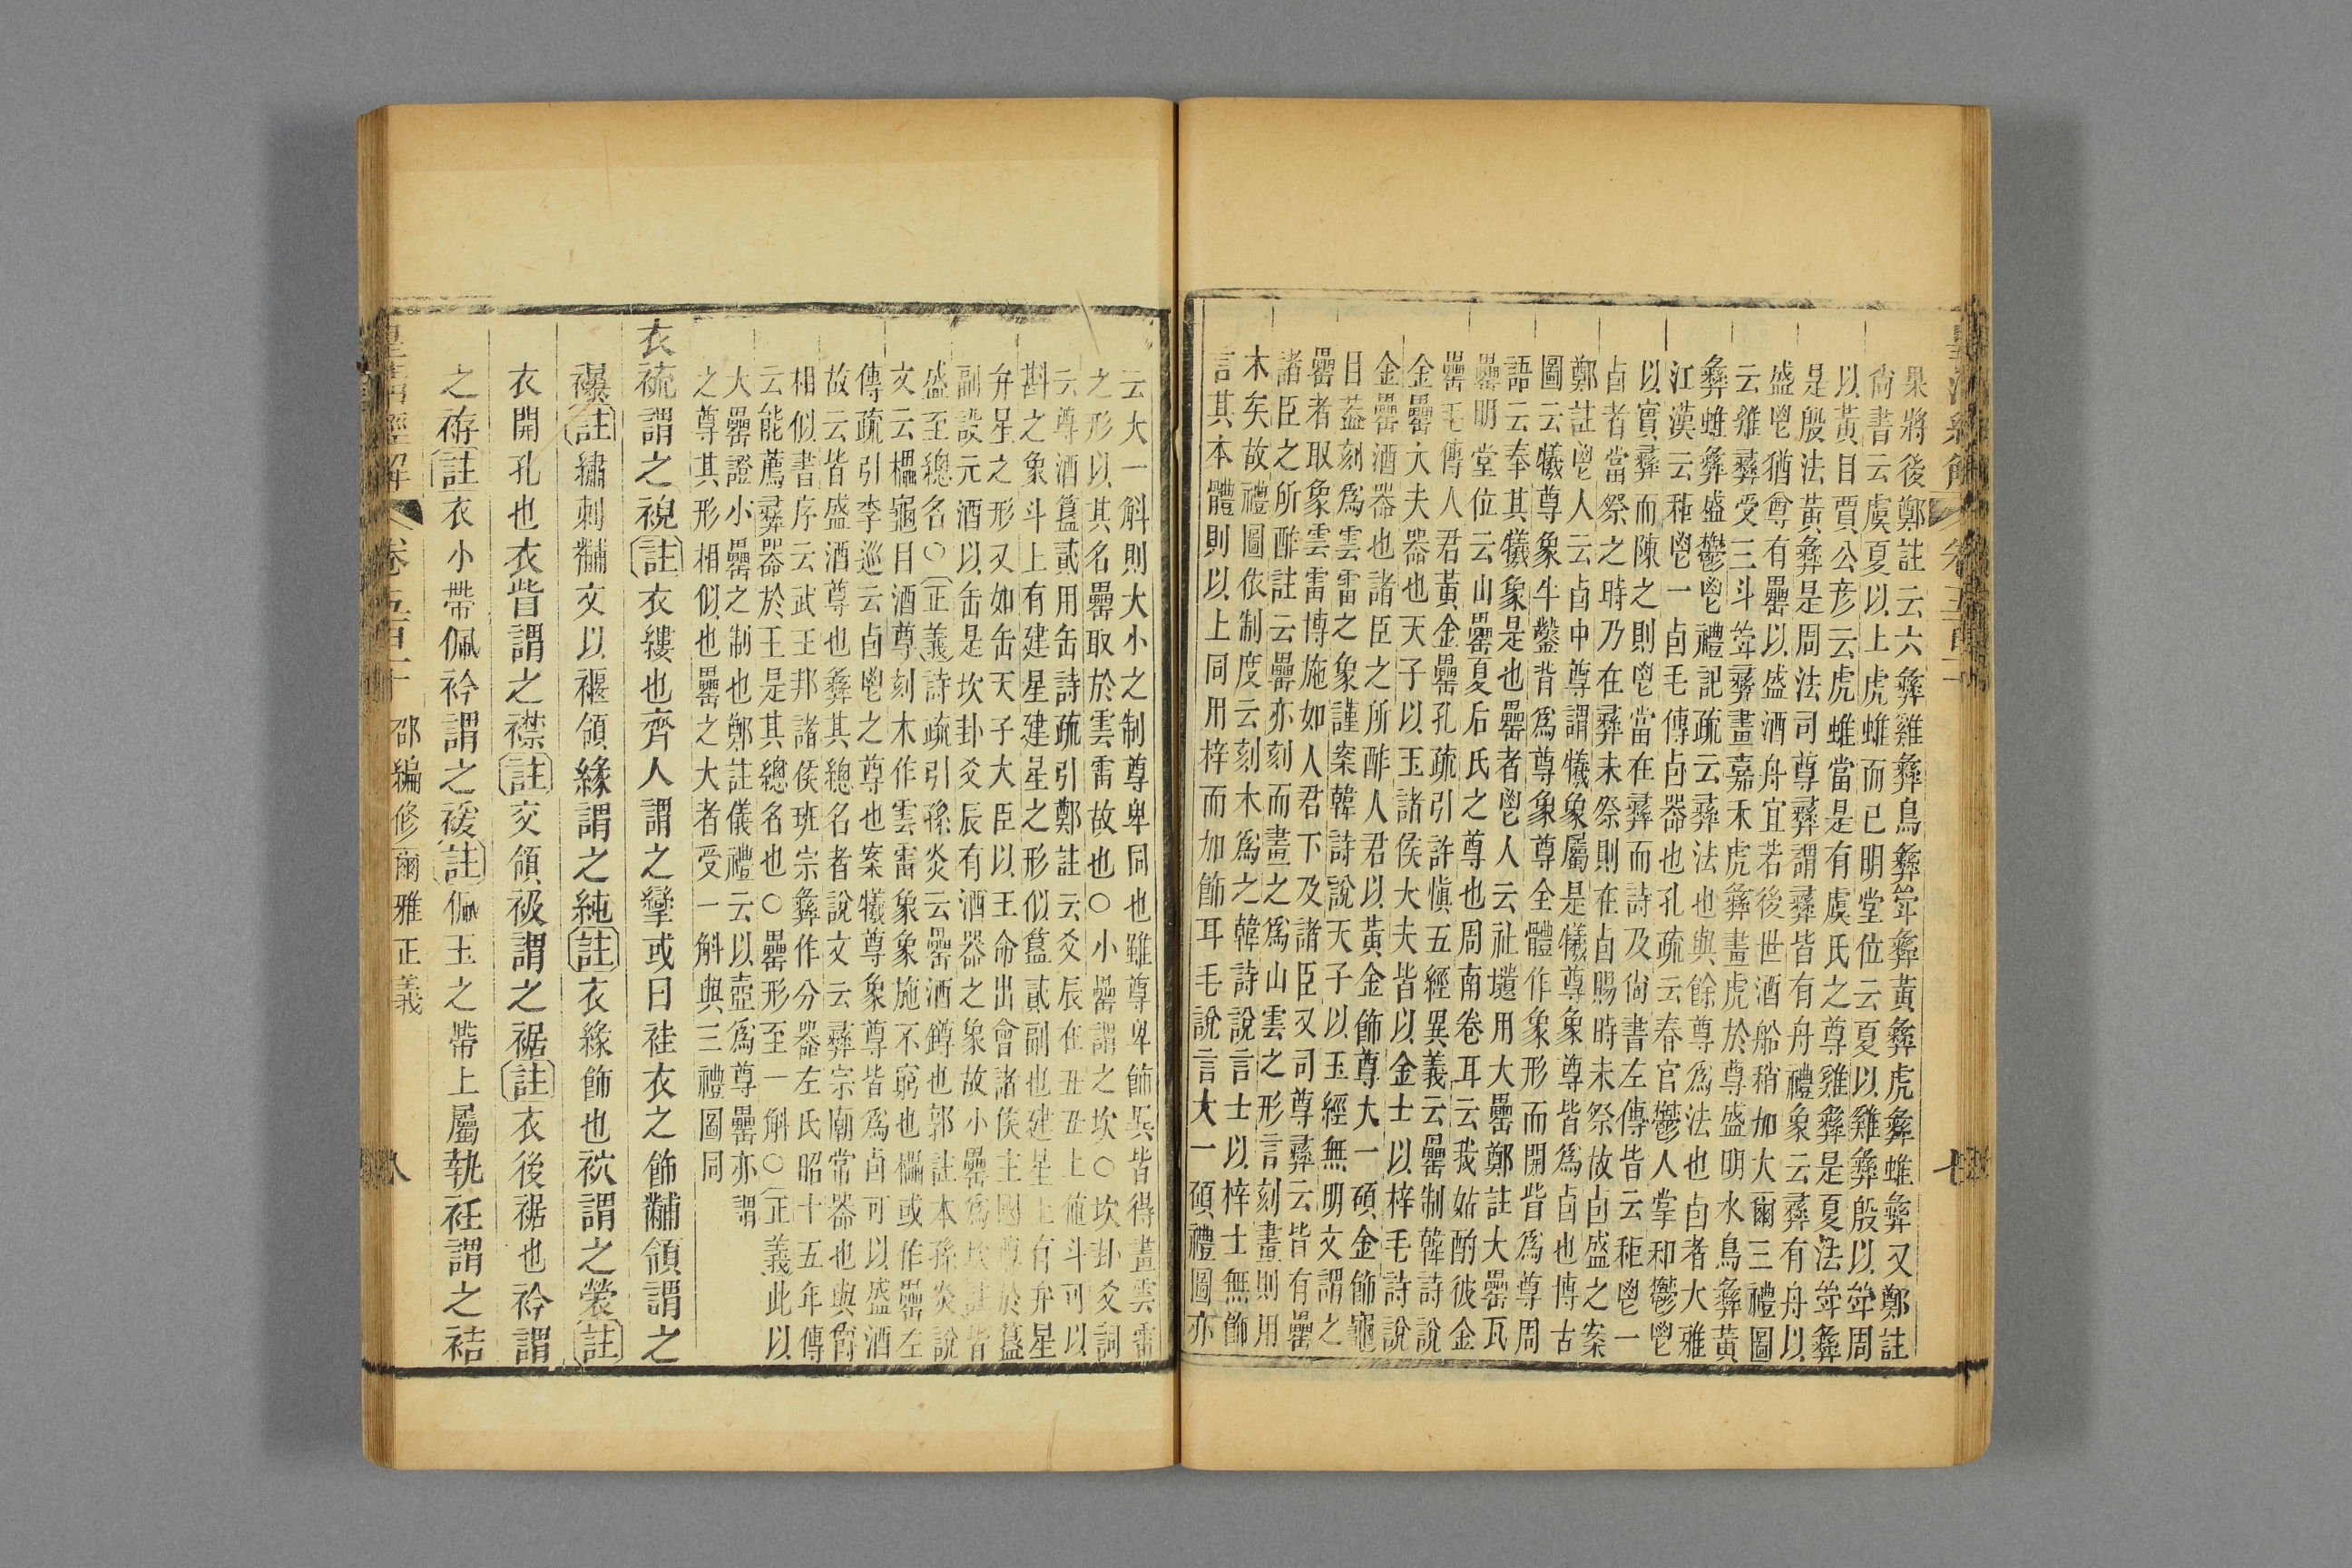 果將後鄭註云六彝雞彝鳥彝斝彝黃彝虎彝蜼彝又鄭註
尙書云虞夏以上虎蜼而已明堂位云夏以雞彝殷以斝周
以黃目賈公彥云虎蜼當是有虞氏之尊雞彝是夏法斝彝
是殷法黃彝是周法司尊彝謂彝皆有舟禮象云彝有舟以
盛鬯猶尊有罍以盛酒舟宜若後世酒船稍加大爾三禮圖
云雞彝受三斗斝彝畫嘉禾虎彝畫虎於尊盛明水鳥彝黃
彝蜼彝盛鬱鬯禮記疏云彝法也與餘尊爲法也卣者大雅
江漢云秬鬯一卣毛傳卣器也孔疏云春官鬱人掌和鬱鬯
以實彝而陳之則鬯當在彝而詩及尙書左傳皆云秬鬯一
卣者當祭之時乃在彝未祭則在卣賜時未祭故卣盛之案
鄭註鬯人云卣中尊謂犧象屬是犧尊象尊皆爲卣也博古
圖云犧尊象牛鑿背爲尊象尊全體作象形而開背爲尊周
語云奉其犧象是也罍者鬯人云社壝用大罍鄭註大罍瓦
罍明堂位云山罍夏后氏之尊也周南卷耳云我姑酌彼金
罍毛傳人君黃金罍孔疏引許愼五經異義云罍制韓詩說
金罍大夫器也天子以玉諸侯大夫皆以金士以梓毛詩說
金罍酒器也諸臣之所酢人君以黃金飾尊大一碩金飾龜
目蓋刻爲雲雷之象謹案韓詩說天子以玉經無明文謂之
罍者取象雲雷博施如人君下及諸臣又司尊彝云皆有罍
諸臣之所酢註云罍亦刻而畫之爲山雲之形言刻畫則用
木矣故禮圖依制度云刻木爲之韓詩說言士以梓士無飾
言其本體則以上同用梓而加飾耳毛說言大一碩禮圖亦
云大一斛則大小之制尊卑同也雖尊卑飾異皆得畫雲雷
之形以其名罍取於雲雷故也○小罍謂之坎○坎卦爻詞
云尊酒簋貳用缶詩疏引鄭註云爻辰在丑丑上値斗可以
斟之象斗上有建星建星之形似簋貳副也建星上有弁星
弁星之形又如缶天子大臣以王命出會諸侯主國尊於簋
副設元酒以缶是坎卦爻辰有酒器之象故小罍爲坎註皆
盛至總名○正義詩疏引孫炎云罍酒罇也郭註本孫炎說
文云櫑龜目酒尊刻木作雲雷象象施不窮也櫑或作罍左
傳疏引李巡云卣鬯之尊也案犧尊象尊皆爲卣可以盛酒
故云皆盛酒尊也彝其總名者說文云彝宗廟常器也與爵
相似書序云武王邦諸侯班宗彝作分器左氏昭十五年傳
云能薦彝器於王是其總名也○罍形至一斛○正義此以
大罍證小罍之制也鄭註儀禮云以壺爲尊罍亦謂
之尊其形相似也罍之大者受一斛與三禮圖同
衣䘱謂之䘽註衣縷也齊人謂之攣或曰袿衣之飾黼領謂之
襮註繡刺黼文以褗領緣謂之純註衣緣飾也袕謂之褮註
衣開孔也衣眥謂之襟註交領衱謂之裾註衣後裾也衿謂
之袸註衣小帶佩衿謂之褑註佩玉之帶上屬執衽謂之袺
皇淸經解 卷五百十 邵編修爾雅正義 八